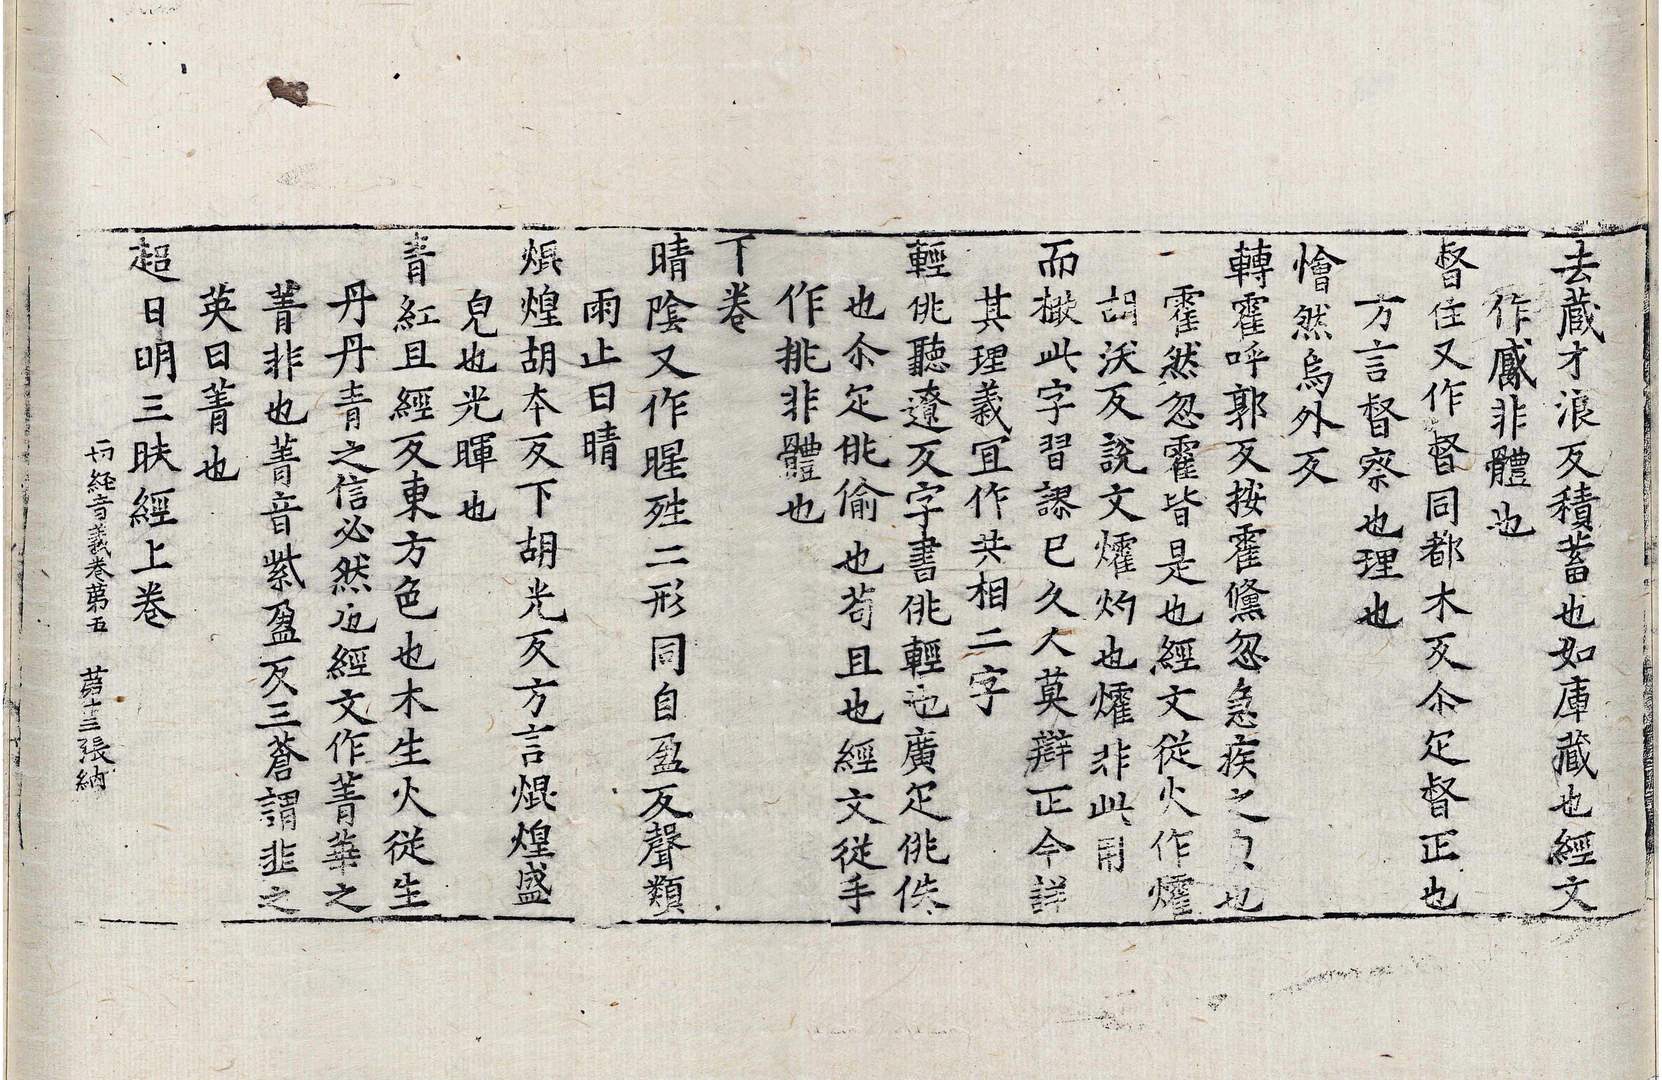 去藏才浪反積蓄也如庫藏也經文
作𢨋非體也
督住又作督同都木反尒疋督正也
方言督察也理也
懀然烏外反
轉霍呼郭反按霍儵忽急疾之皃也
霍然忽霍皆是也經文従火作㸌
胡沃反說文㸌灼也㸌非此用
而檖此字習謬已久人莫辯正今詳
其理義冝作共相二字
輕佻聽遼反字書佻輕也廣疋佻佚
也尒疋佻偷也苟且也經文従手
作挑非體也
下卷
晴陰又作暒殅二形同自盈反聲類
雨止曰晴
焜煌胡本反下胡光反方言焜煌盛
皃也光暉也
青紅且經反東方色也木生火従生
丹丹青之信必然也經文作菁華之
菁非也菁音紫盈反三蒼謂韭之
英曰菁也
超日明三昧經上卷
一切経音義卷苐五 苐十三張納